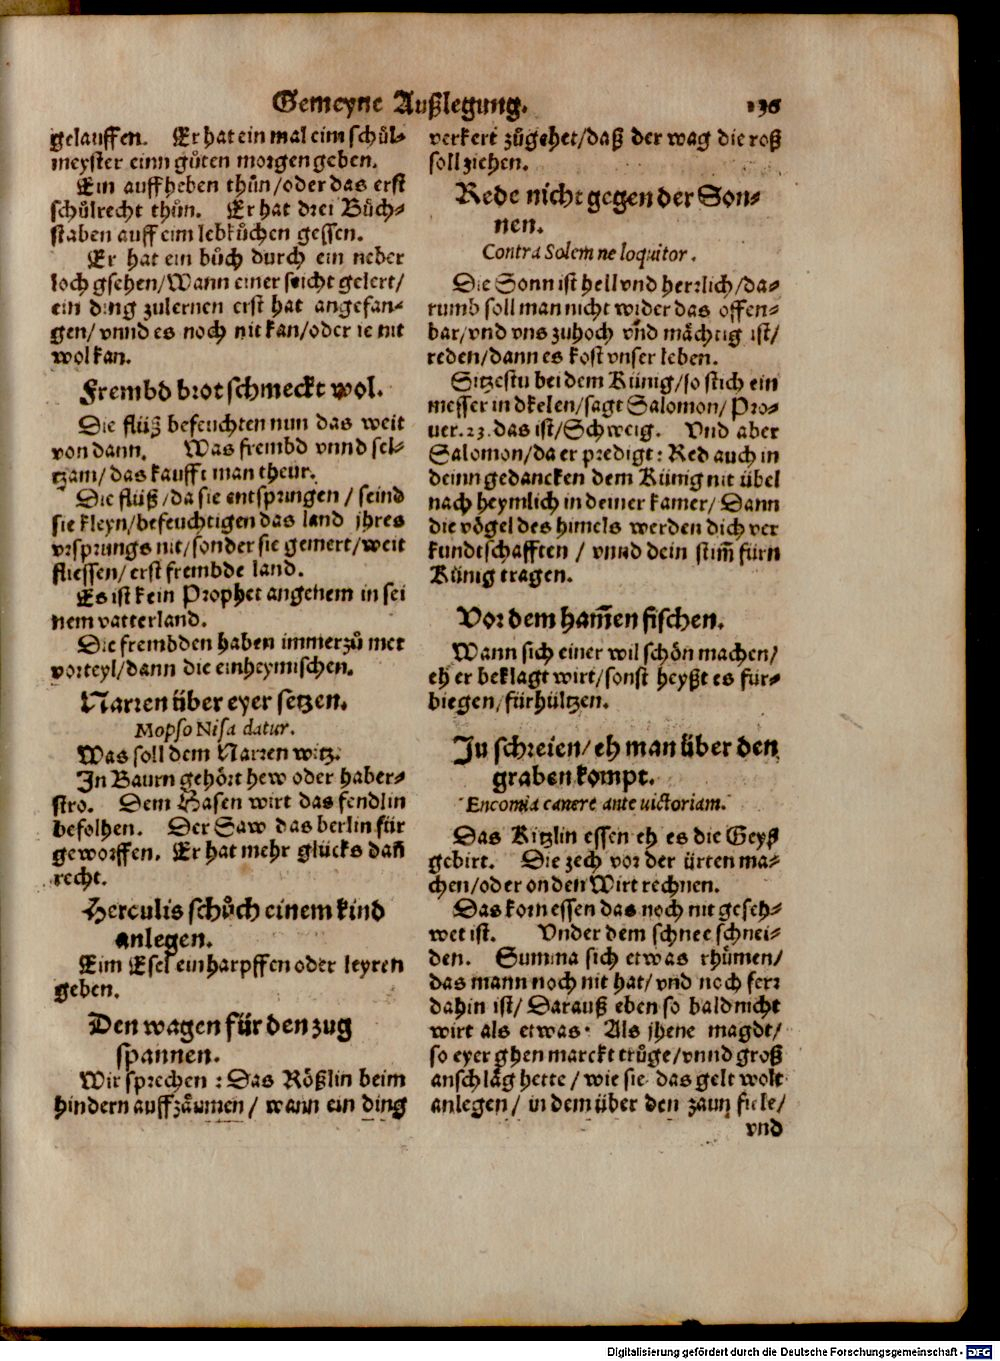 Gemeyne Außlegung. 136
gelauffen. Er hat ein mal eim schůl⸗
meyster einn gůten morgen geben.
Ein auffheben thůn/oder das erst
schůlrecht thůn. Er hat drei Bůch⸗
staben auff eim lebkůchen gessen.
Er hat ein bůch durch ein neber
loch gsehen/Wann einer seicht gelert/
ein ding zulernen erst hat angefan⸗
gen/vnnd es noch nit kan/oder ie nit
wol kan.
Frembd brot schmeckt wol.
Die flüß befeuchten nun das weit
von dann. Was frembd vnnd sel⸗
tzam/das kaufft man theur.
Die flüß/da sie entspringen/seind
sie kleyn/befeuchtigen das land jhres
vrsprungs nit/sonder sie gemert/weit
fliessen/erst frembde land.
Es ist kein Prophet angenem in sei
nem vatterland.
Die frembden haben immerzů mer
vorteyl/dann die einheymischen.
Narren über eyer setzen.
Mopso Nisa datur.
Was soll dem Narren witz.
In Baurn gehört hew oder haber⸗
stro. Dem Hasen wirt das fendlin
befolhen. Der Saw das berlin für
geworffen. Er hat mehr glücks dañ
recht.
Herculis schůch einem kind
anlegen.
Eim Esel ein harpffen oder leyren
geben.
Den wagen für den zug
spannen.
Wir sprechen: Das Rößlin beim
hindern auffzäumen/wann ein ding
verkert zůgehet/daß der wag die roß
soll ziehen.
Rede nicht gegen der Son⸗
nen.
Contra Solem ne loquitor.
Die Sonn ist hell vnd herrlich/da⸗
rumb soll man nicht wider das offen⸗
bar/vnd vns zuhoch vnd mächtig ist/
reden/dann es kost vnser leben.
Sitzestu bei dem Künig/so stich ein
messer in dkelen/sagt Salomon/Pro⸗
uer.23.das ist/Schweig. Vnd aber
Salomon/da er predigt: Red auch in
deinn gedancken dem Künig nit übel
nach heymlich in deiner kamer/Dann
die vögel des himels werden dich ver
kundtschafften/vnnd dein stim̃ fürn
Künig tragen.
Vor dem ham̃en fischen.
Wann sich einer wil schön machen/
eh er beklagt wirt/sonst heyßt es für⸗
biegen/fürhültzen.
Ju schreien/eh man über den
graben kompt.
Encomia canere ante uictoriam.
Das Kitzlin essen eh es die Geyß
gebirt. Die zech vor der ürten ma⸗
chen/oder on den Wirt rechnen.
Das korn essen das noch nit geseh⸗
wet ist. Vnder dem schnee schnei⸗
den. Summa sich etwas rhůmen/
das mann noch nit hat/vnd noch ferr
dahin ist/Darauß eben so bald nicht
wirt als etwas. Als jhene magdt/
so eyer ghen marckt trůge/vnnd groß
anschläg hette/wie sie das gelt wolt
anlegen/in dem über den zaun fiele/
vnd
Digitalisierung gefördert durch die Deutsche Forschungsgemeinschaft - DFG